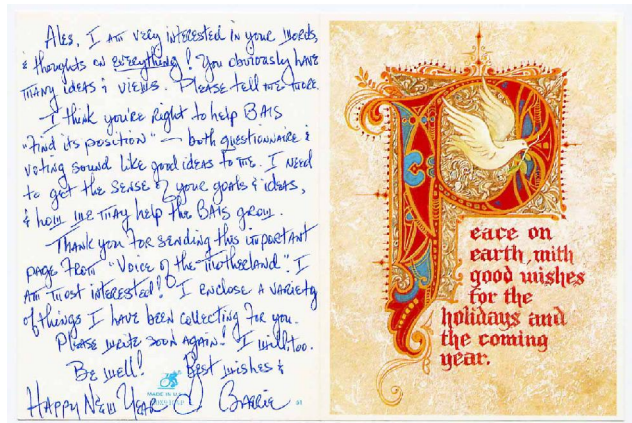 Ales, I am very interested in your words,
& thoughts on everything! You obviously have
many ideas & views. Please tell me more.
I think you're right to help BAIS
"find its position" — both questionnaire &
voting sound like good ideas to me. I need
to get the sense of your goals & ideas,
& how we may help the BAIS grow.
Thank you for sending this important
page from "Voice of the Motherland". I
am most interested! I enclose a variety
of things I have been collecting for you.
Please write soon again! I will, too.
Be well! Best wishes &
Happy New Year
Barrie
MADE IN
Peace on
earth, with
good wishes
for the
holidays and
the coming
year.